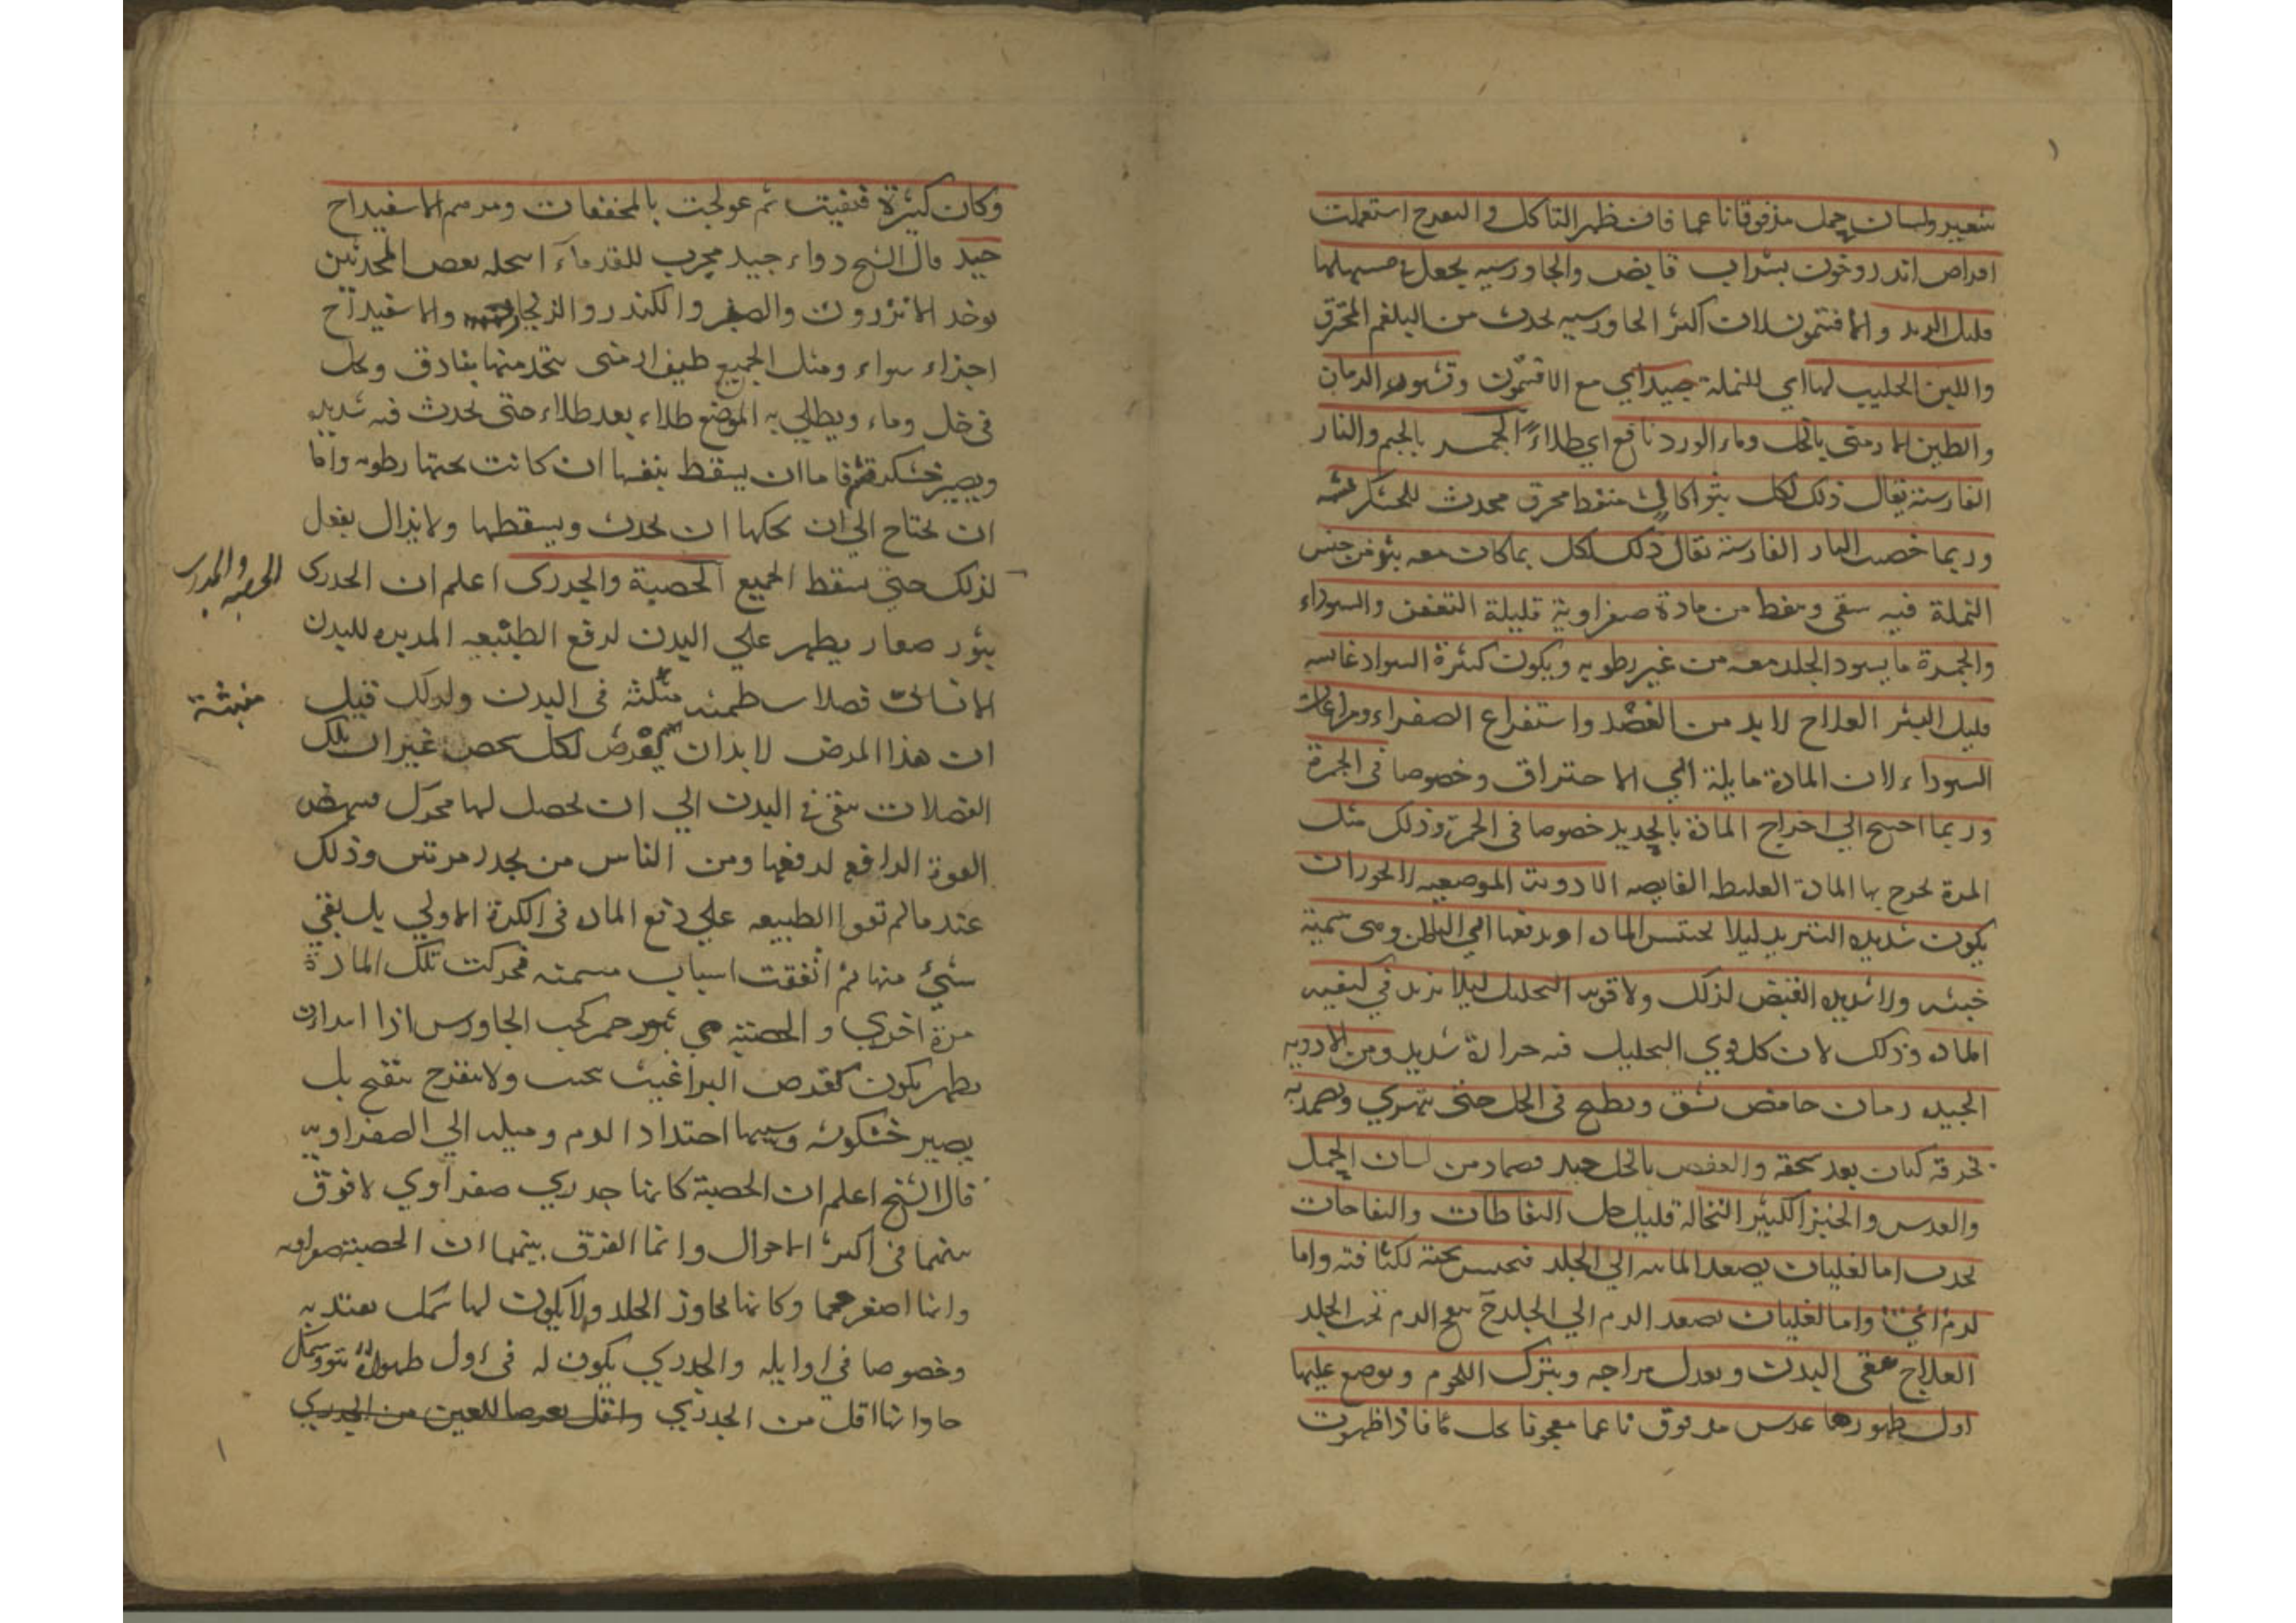 شعير ولسان حمل مذقوقا ناعما فان ظهر التاكل والتقرح استعملت
اقراص اندروخون بشراب قابض والجاورسيه يجعل في مسهلها
قليل التربد والافتيمون لان اكثر الجاورسيه يحدث من البلغم المحترق
واللبن الحليب لها اي للنملة جيد اي مع الافتيمون وقشور الرمان
والطين الارمنى بالخل وماء الورد نافع اي طلاء الجمر بالجيم والنار
الفارسية يقال ذلك لكل بثر اكال منفط محرق محدث للخشكريشه
وربما خصت النار الفارسية يقال ذلك لكل بما كان معه بثر من جنس
النملة فيه سعى ونفط من مادة صفراوية قليلة التعفن والسوداء
والجمرة ما يسود الجلد معه من غير رطوبه ويكون كثيرة السواد
قليل البثر العلاج لا بد من الفصد واستفراغ الصفراء ومراعات
السوداء لان المادة مايلة الي الاحتراق وخصوصا فى الجمرة
وربما احتيج الي اخراج المادة بالحديد خصوصا فى الجمرة وذلك مثل
المرة يخرج بها المادة الغليظه الادوية الموضعيه
يكون شديده التبريد ليلا يحتبس الماده او يدفعها الي الباطن وهى سمية
خبيثه ولا شديده القبض لذلك ولا قويه التحليل ليلا تزيد في كيفيه
الماده وذلك لان كل قوي التحليل فيه حرارة شديده ومن الادويه
الجيده رمان حامض يشق ويطبخ فى الخل حتى يتهري ويضمد به
بخرقة كتان بعد سحقه والعفص بالخل جيد وضماد من لسان الحمل
والعدس والخبز الكثير النخالة قليل خل النفاطات والنفاخات
يحدث اما لغليان يصعد المائيه الي الجلد فتحتبس تحته لكثافته واما
لدم واما لغليان يصعد الدم الي الجلد الدم تحت الجلد
العلاج ينقى البدن ويعدل مزاجه ويترك اللحوم ويوضع عليها
اول ظهورها عدس مدقوق ناعما معجونا بخل فاذا ظهرت
وكان كبيرة فنقيت ثم عولجت بالمجففات ومرهم الاسفيداج
جيد قال الشيخ دواء جيد مجرب للقدماء بعض المحدثين
يوخذ الانزروت والصبر والكندر والزنجار والاسفيداج
اجزاء سواء ومثل الجميع طين ارمنى يتخذ منها بنادق ويحل
فى خل وماء ويطلي به الموضع طلاء بعد طلاء حتى يحدث فيه شديد
ويصير خشكريشة فاما ان يسقط بنفسها ان كانت تحتها رطوبه واما
ان يحتاج الي ان يحكها ان يحدث ويسقطها ولا يزال يفعل
لذلك حتى يسقط الجميع الحصبة والجدرى اعلم ان الجدرى
الحصبه والجدرى
بثور صغار يظهر علي البدن لدفع الطبيعه المدبره للبدن
فضلات طمثيه فى البدن ولذلك قيل
منبثة
ان هذا المرض لا بد ان يعرض لكل شخص غير ان تلك
الفضلات تبقى في البدن الي ان يحصل لها محرك فينهض
القوة الدافعه لدفعها ومن الناس من يجدر مرتين وذلك
عندما لم تقوا الطبيعه علي دفع الماده فى الكرة الاولي بل بقي
شيئ منها ثم اتفقت اسباب فحركت تلك المادة
مرة اخري والحصبة هي بثور حمر كحب الجاورس اذا ابتدات
يظهر يكون كقرص البراغيث ولا ينفتح بتقيح بل
يصير خشكريشه وسببها احتداد الدم وميله الي الصفراويه
قال الشيخ اعلم ان الحصبة كانها جدري صفراوي لا فرق
بينهما فى اكثر الاحوال وانما الفرق بينهما ان الحصبة صفراويه
وانها اصغر حجما وكانها لا يجاوز الجلد ولا يكون لها سمك يعتد به
وخصوصا في اوايله والجدري يكون له فى اول ظهوره نتو وسمك
وانها اقل من الجدري واقل تعرضا للعين من الجدري